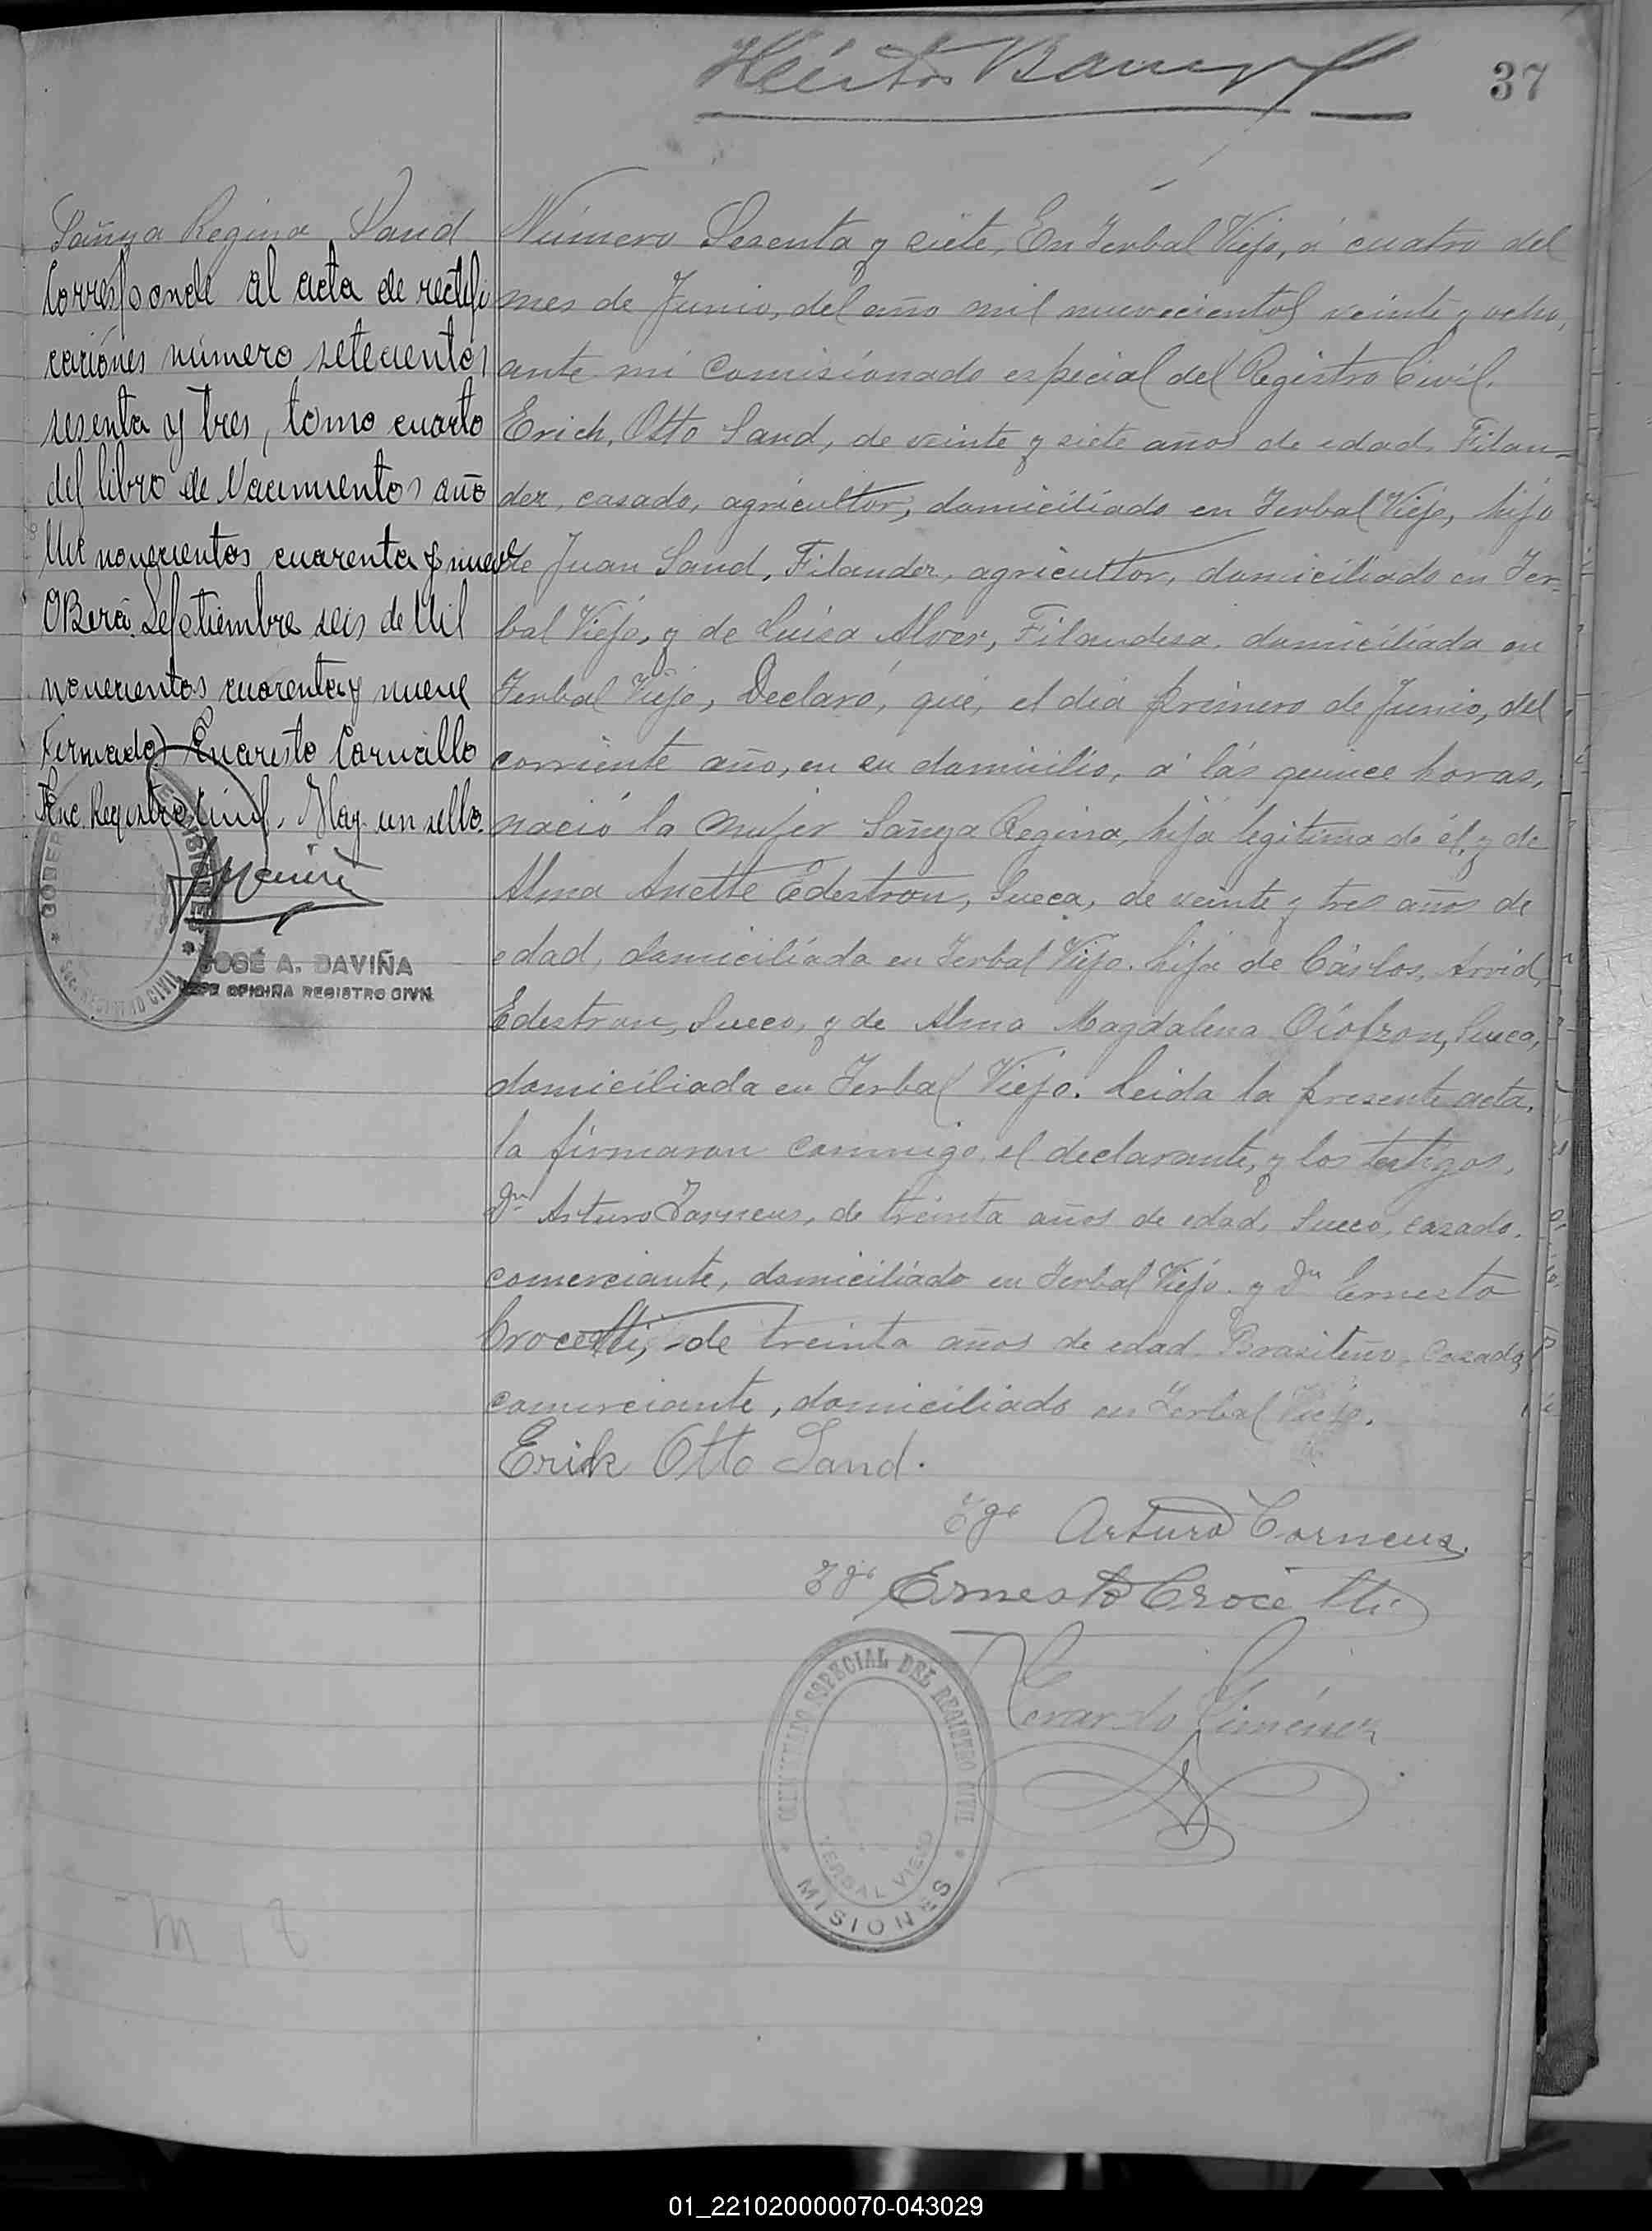 37
Sañya Regina Sand
Corresponde al acta de rectifi
caciónes número setecientos
sesenta y tres, tomo cuarto
del libro de Nacimientos año
Mil novecientos cuarenta y nueve
OBerá, Septiembre seis de Mil
novecientos cuarenta y nueve
Firmado) Evaristo Carvallo
Enc. Registro Civil. Hay un sello.
JOSÉ A. DAVIÑA
JEFE OFICINA REGISTRO CIVIL
Número Sesenta y siete, En Yerbal Viejo, á cuatro del
mes de Junio, del año mil nuevecientos veinte y ocho,
ante mi Comisionado especial del Registro Civil.
Erich, Otto Sand, de veinte y siete años de edad, Filan-
dez, casado, agricultor, domiciliado en Yerbal Viejo, hijo
de Juan Sand, Filandez, agricultor, domiciliado en Yer-
bal Viejo, y de Luisa Alver, Filandesa, domiciliada en
Yerbal Viejo, Declaró, qué, el día primero de Junio, del
corriente año, en su domicilio, á lás quince horas,
nació la mujer Sañya Regina, hija legitima de él, y de
Alma Anette Edestron, Sueca, de veinte y tres años de
edad, domiciliada en Yerbal Viejo. hija de Cárlos, Arvid,
Edestron, Sueco, y de Alma Magdalena Olofzon, Sueca,
domiciliada en Yerbal Viejo. Leida la presente acta,
la firmaron conmigo, el declarante, y los testigos,
Dn Arturo Torneus, de treinta años de edad, Sueco, casado,
comerciante, domiciliado en Yerbal Viejo. y Dn Ernesto
Crocetti, de treinta años de edad Brasileño, Casado,
comerciante, domiciliado en Yerbal Viejo.
Erik Otto Sand.
Tgo Arturo Torneus.
Tgo Ernesto Crocetti
Gerardo Giménez
COMISIONADO ESPECIAL DEL REGISTRO CIVIL
YERBAL VIEJO
MISIONES
01_221020000070-043029